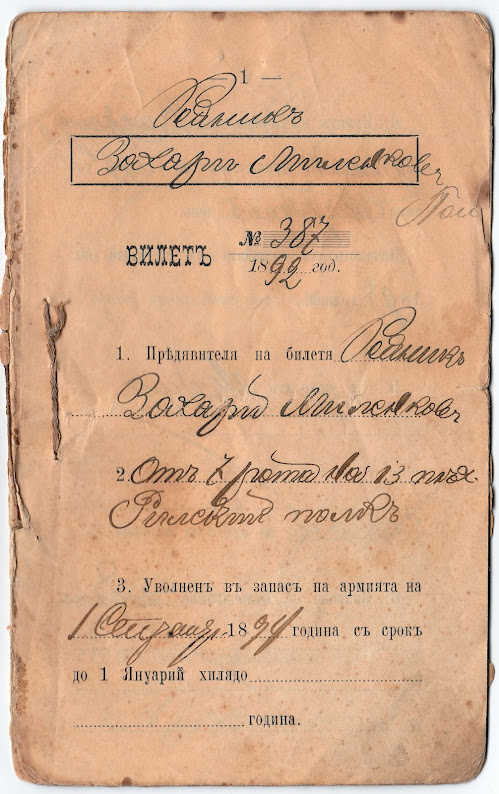 — 1 —
Редникъ
Захари Милѣнковъ
БИЛЕТЪ
№ 387
1892 год.
1. Прѣдявителя на билетя Редникъ
Захарий Милѣнковъ
2. Отъ 7 рота на 13 пѣх.
Рилский полкъ
3. Уволненъ въ запасъ на армията на
1894 година съ срокъ
до 1 Януарий хилядо
година.